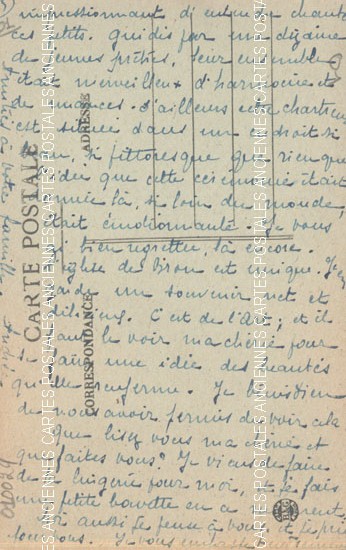 impressionnant d'entendre chanter
ces petits. guidés par une dizaine
de jeunes prêtres, leur ensemble
était merveilleux d'harmonie et
de nuances. d'ailleurs cette chartreuse
est située dans un endroit si
si pittoresque que rien que
l'idée que cette cérémonie était
là, si loin du monde,
était émotionnante. Je vous
ai bien regrettée, là encore.
L'église de Brou est unique. J'en
garde un souvenir net et
délicieux. C'est de l'Art; et il
faut le voir ma chérie pour
se faire une idée des beautés
qu'elle renferme. Je
de vous avoir permis de voir cela
Que lisez vous ma chérie et
que faites vous? Je viens de faire
de la lingerie pour moi, et je fais
une petite bavette en ce moment,
aussi je pense à vous et je prie
pour vous. Je vous embrasse
CARTE POSTALE
CORRESPONDANCE
ADRESSE
CARTES POSTALES ANCIENNES